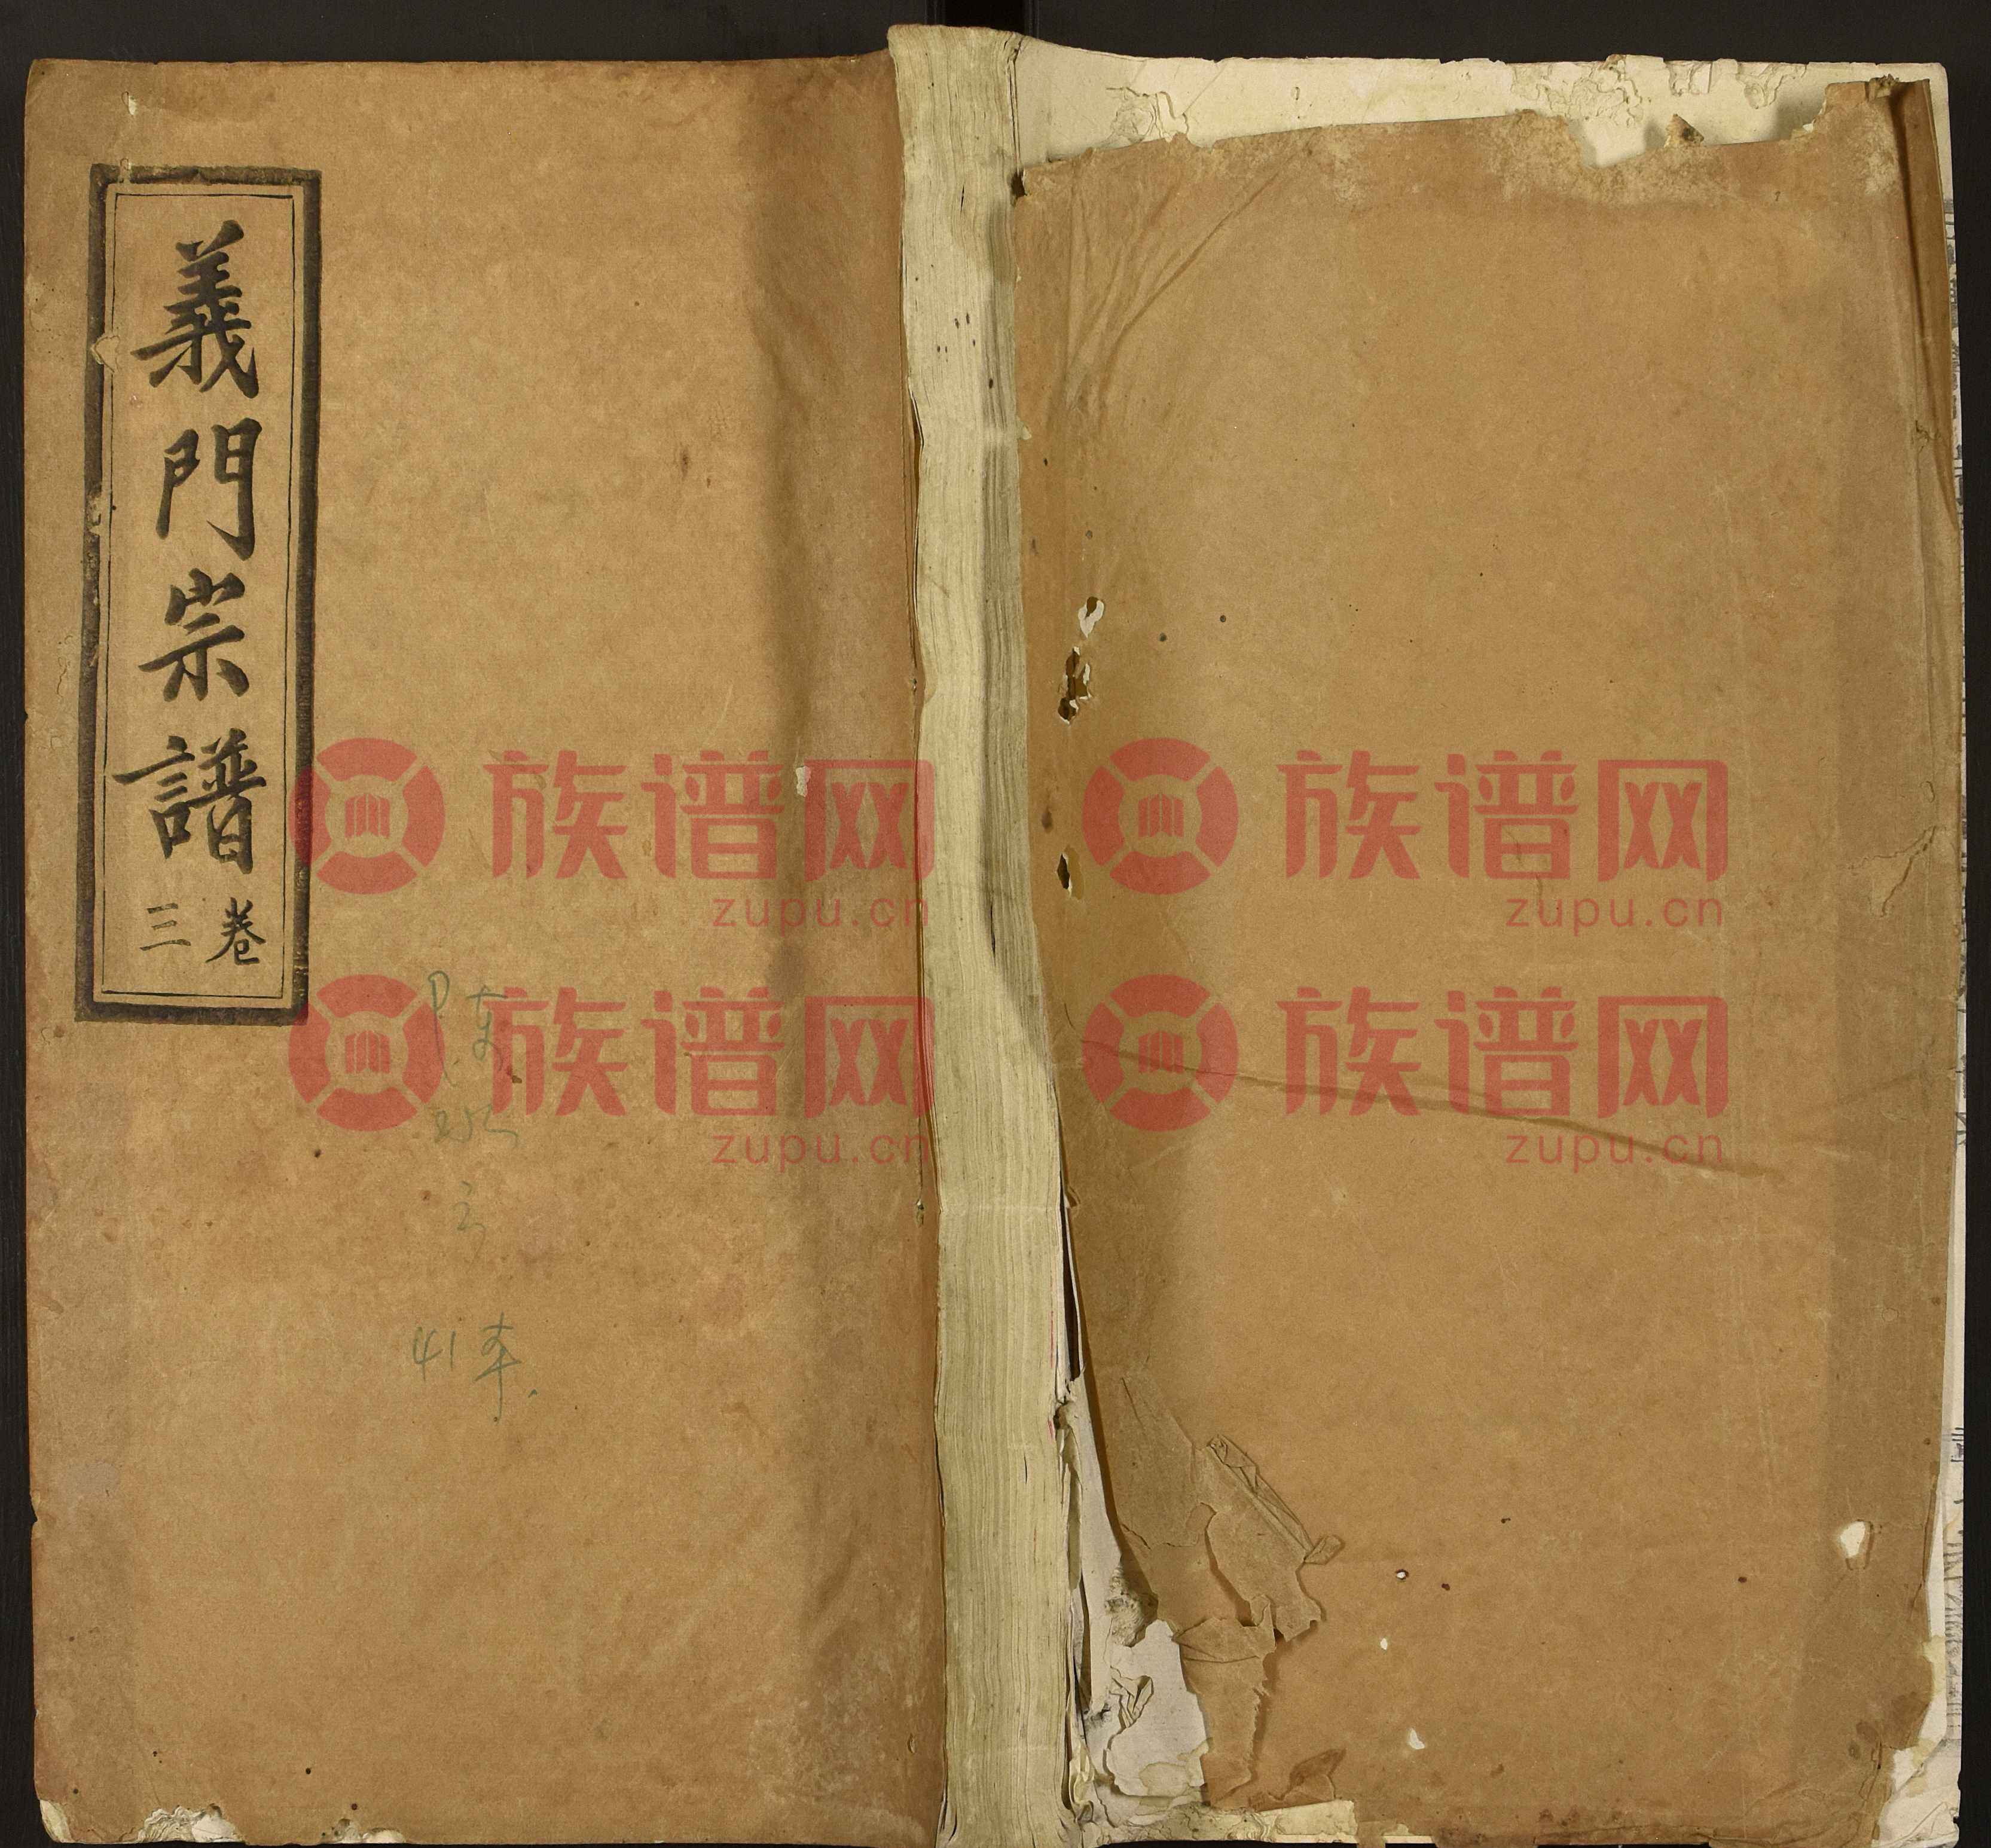 義門宗譜
卷三
陳
41本.
族谱网
zupu.cn
族谱网
zupu.cn
族谱网
zupu.cn
族谱网
zupu.cn